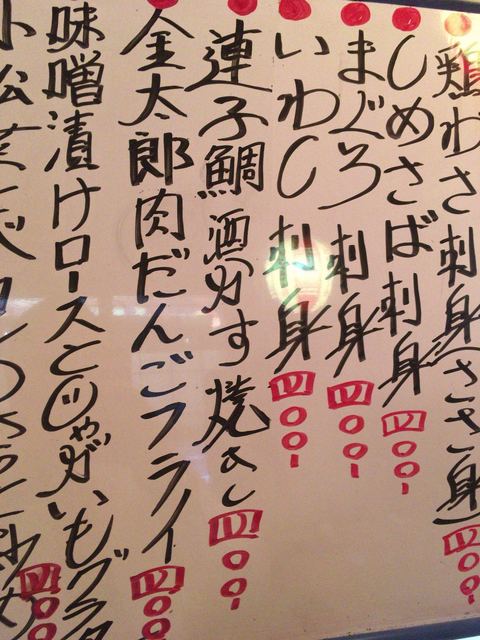 鶏わさ刺身ささ身四〇〇-
しめさば刺身四〇〇-
まぐろ刺身四〇〇-
いわし刺身四〇〇-
連子鯛酒かす焼き四〇〇-
金太郎肉だんごフライ四〇〇
味噌漬けロースとじゃがいもグラタ四〇〇
小松菜と